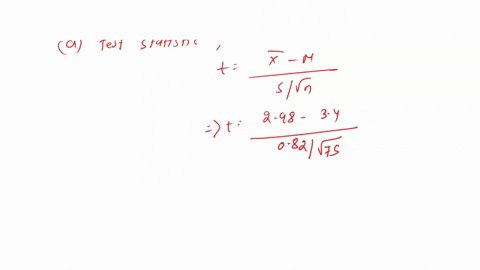 (a) Test statistic,
t = x̄ - M / S/√n
=> t = 2.98 - 3.4 / 0.82/√75